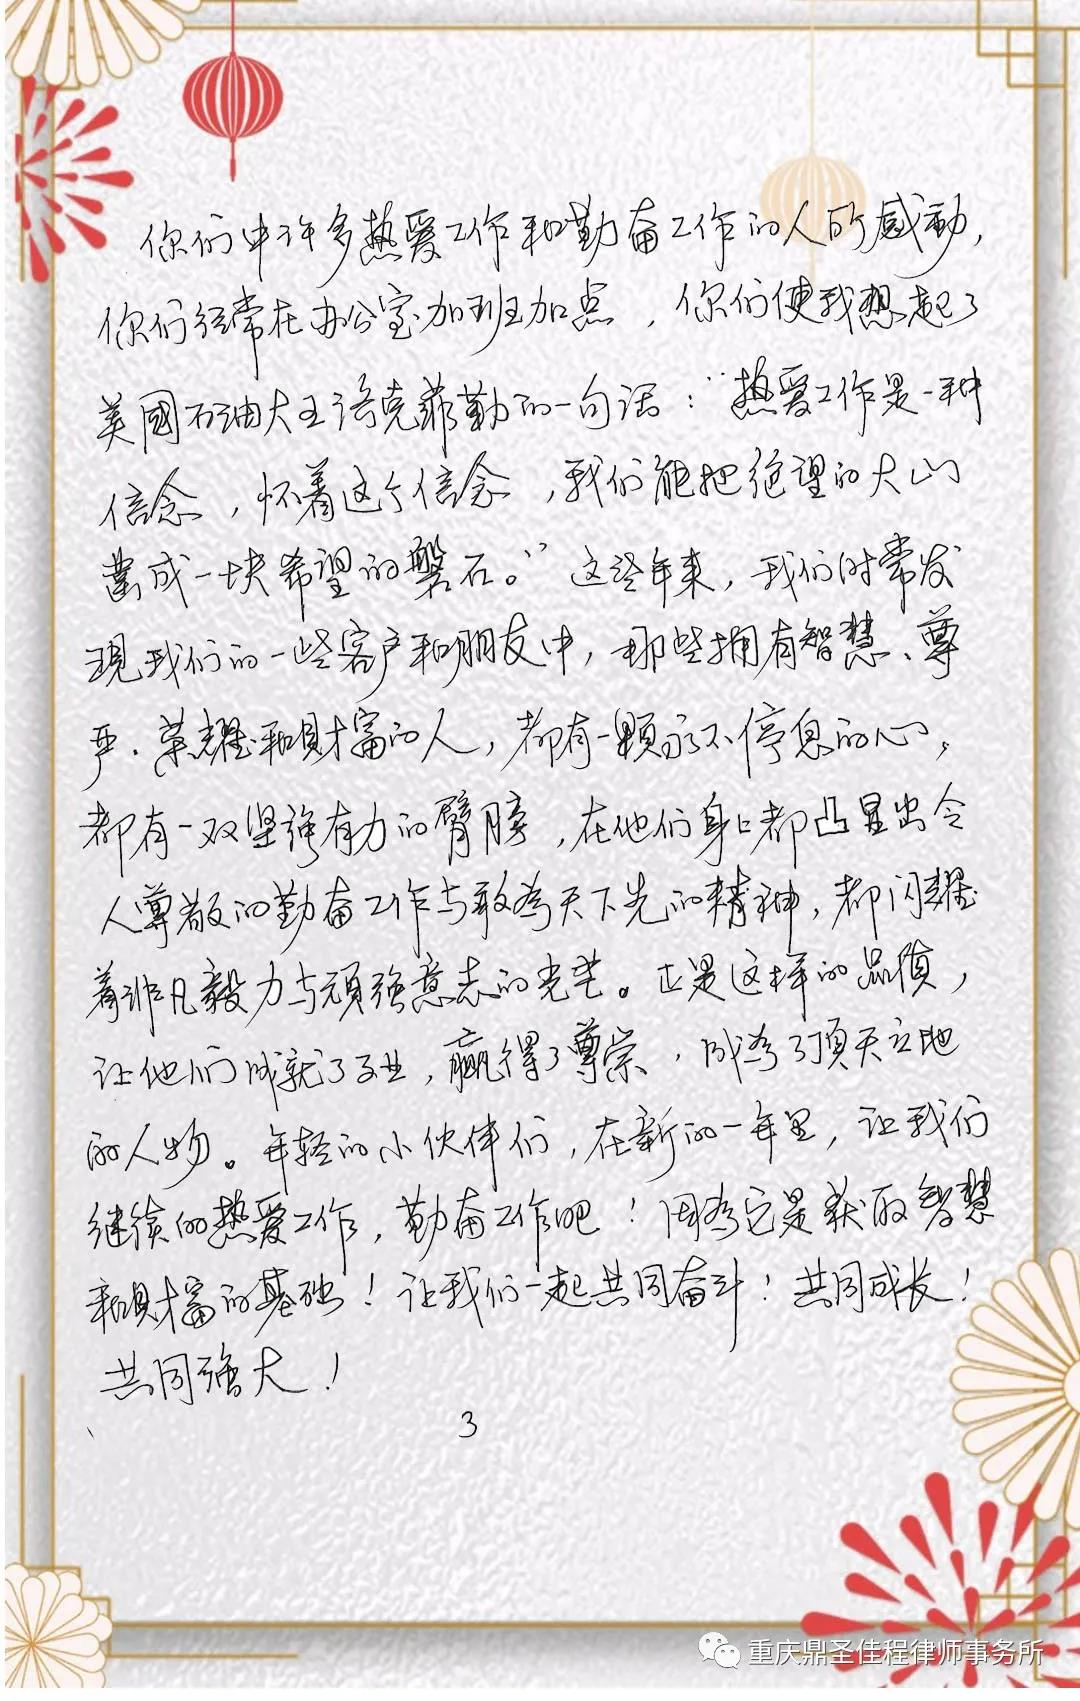 你们中许多热爱工作和勤奋工作的人所感動，
你们经常在办公室加班加点，你们使我想起了
美國石油大王洛克菲勒的一句话：“热爱工作是一种
信念，怀着这个信念，我们能把绝望的大山
凿成一块希望的磐石。”这些年来，我们时常发
現我们的一些客户和朋友中，那些拥有智慧、尊
严、荣耀和財富的人，都有一顆永不停息的心，
都有一双坚强有力的臂膀，在他们身上都凸显出令
人尊敬的勤奋工作与敢为天下先的精神，都闪耀
着非凡毅力与頑强意志的光芒。正是这样的品质，
让他们成就了事业，赢得了尊崇，成为了頂天立地
的人物。年轻的小伙伴们，在新的一年里，让我们
继续的热爱工作，勤奋工作吧！因为它是获取智慧
和財富的基础！让我们一起共同奋斗！共同成长！
共同强大！
3
重庆鼎圣佳程律师事务所